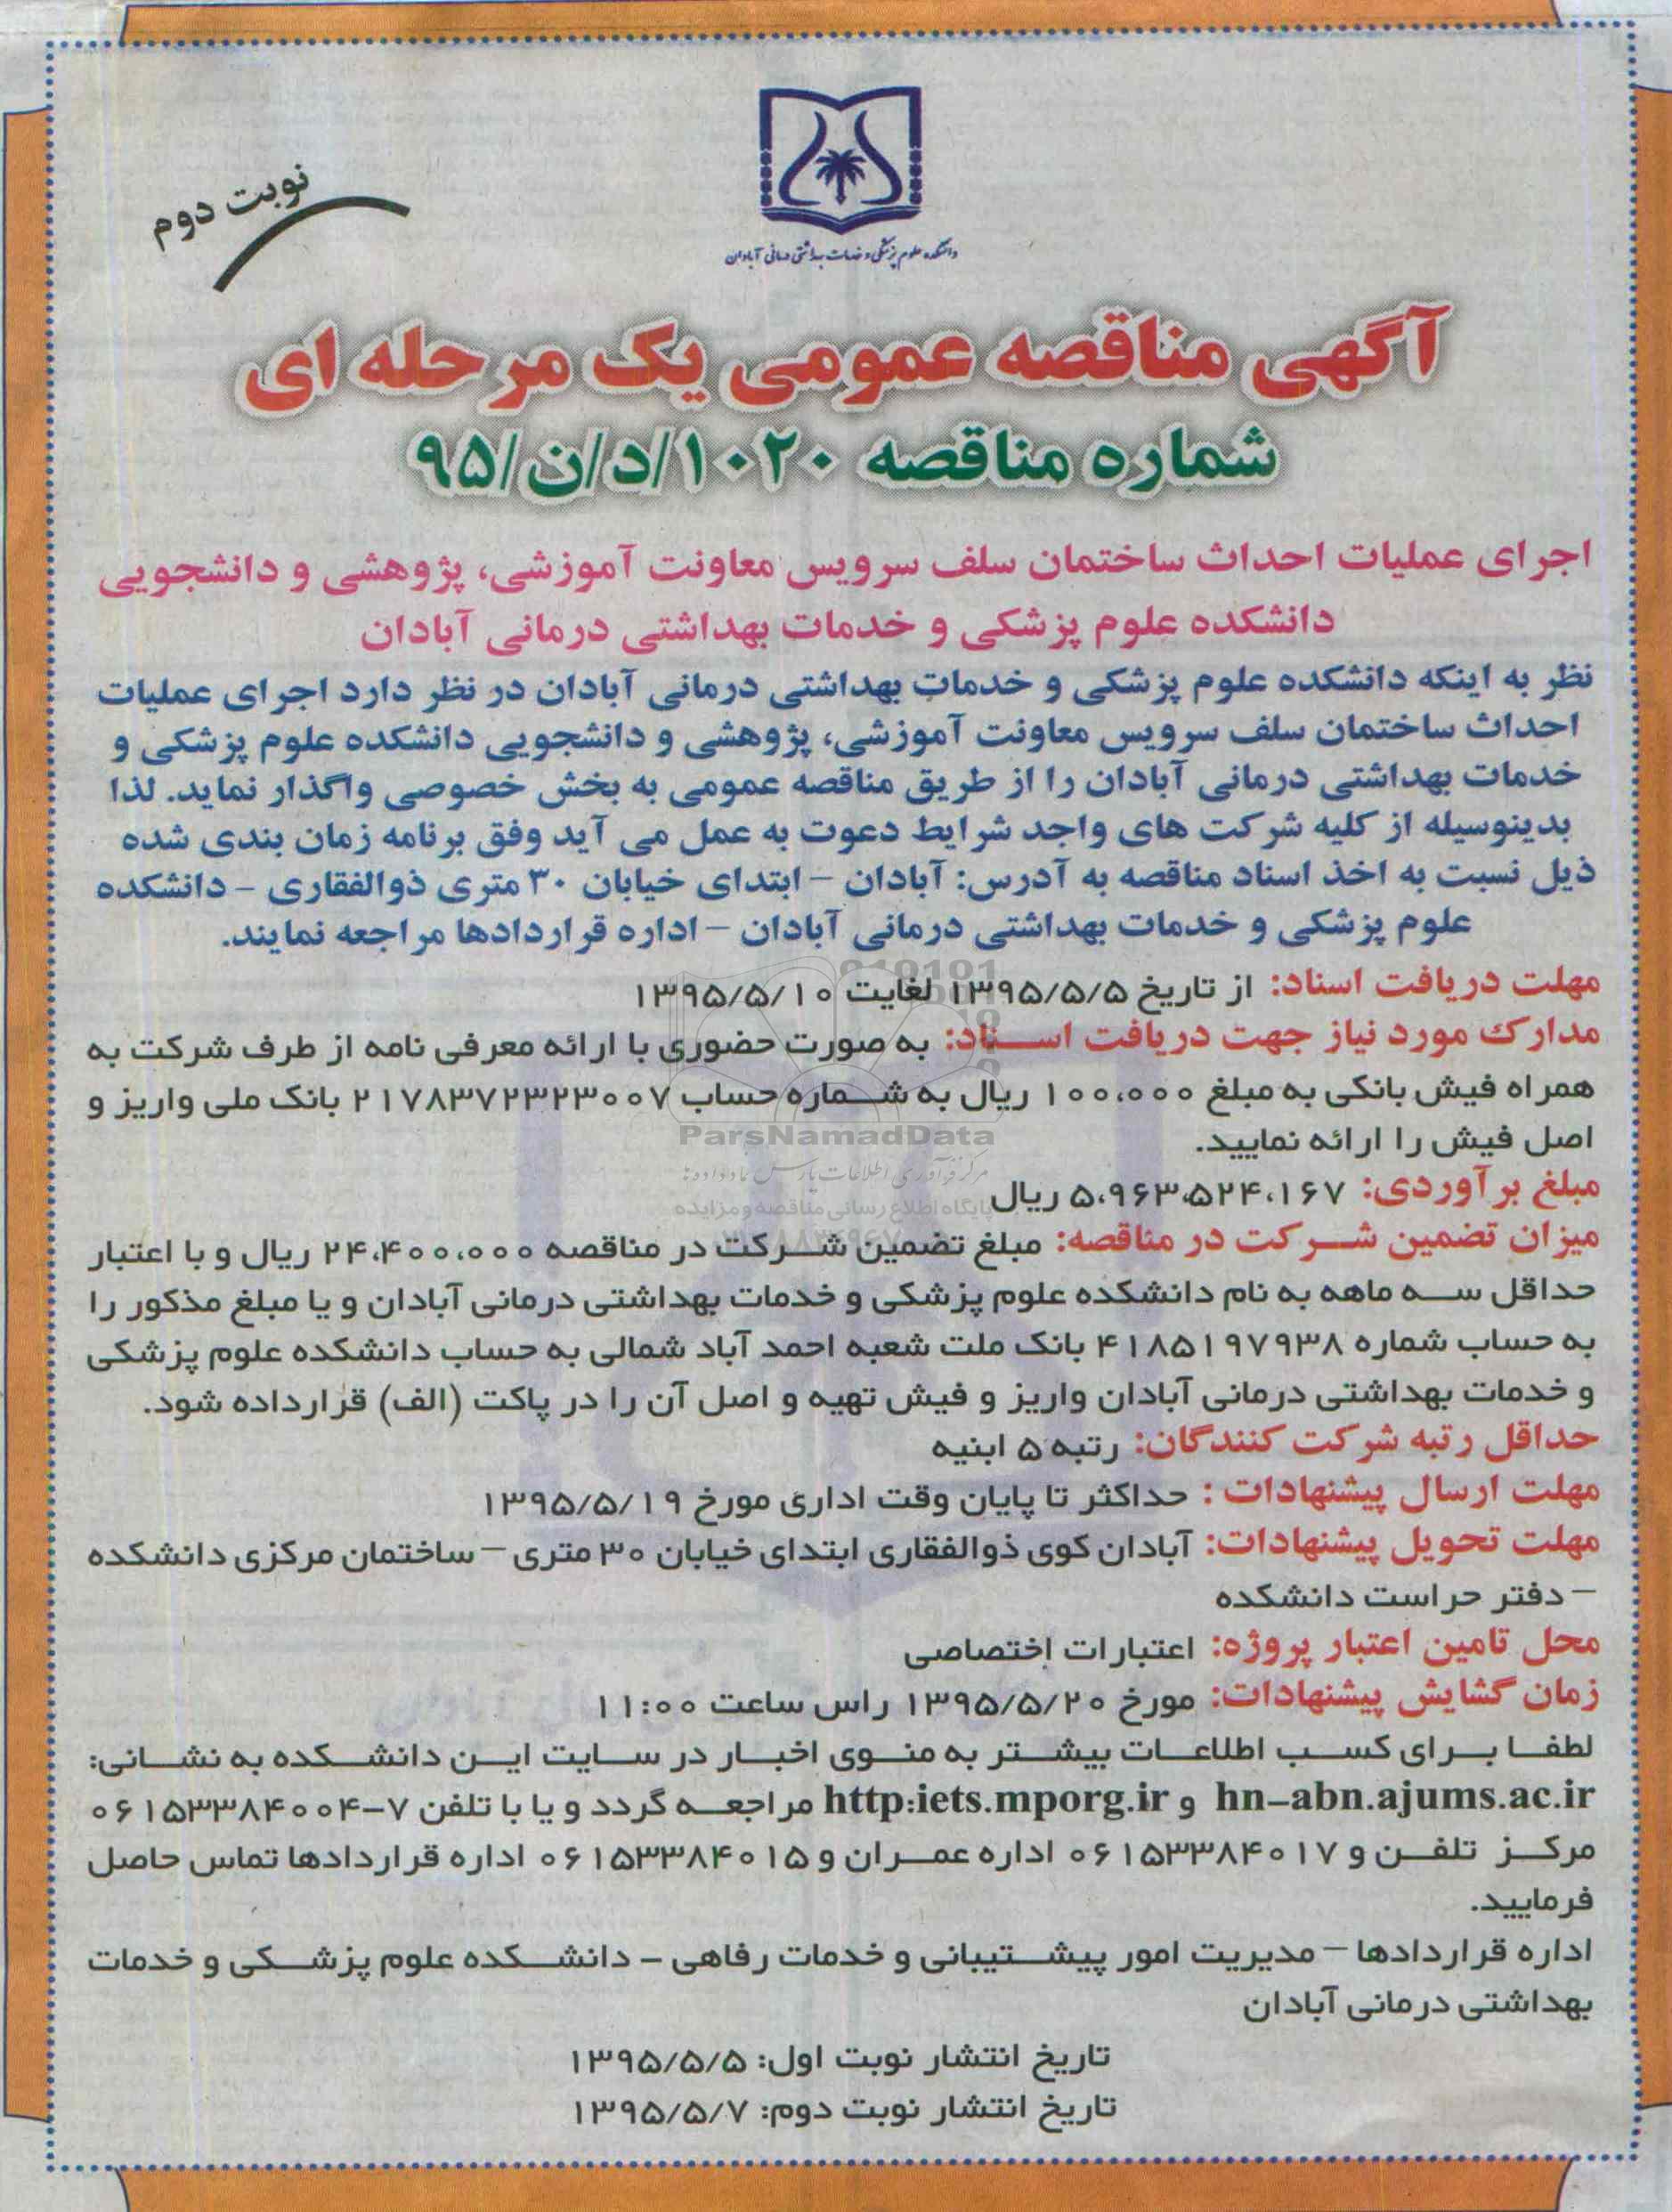 نوبت دوم
دانشکده علوم پزشکی و خدمات بهداشتی درمانی آبادان
آگهی مناقصه عمومی یک مرحله ای
شماره مناقصه ۱۰۲۰/د/ن/۹۵
اجرای عملیات احداث ساختمان سلف سرویس معاونت آموزشی، پژوهشی و دانشجویی
دانشکده علوم پزشکی و خدمات بهداشتی درمانی آبادان
نظر به اینکه دانشکده علوم پزشکی و خدمات بهداشتی درمانی آبادان در نظر دارد اجرای عملیات
احداث ساختمان سلف سرویس معاونت آموزشی، پژوهشی و دانشجویی دانشکده علوم پزشکی و
خدمات بهداشتی درمانی آبادان را از طریق مناقصه عمومی به بخش خصوصی واگذار نماید. لذا
بدینوسیله از کلیه شرکت های واجد شرایط دعوت به عمل می آید وفق برنامه زمان بندی شده
ذیل نسبت به اخذ اسناد مناقصه به آدرس: آبادان – ابتدای خیابان ۳۰ متری ذوالفقاری – دانشکده
علوم پزشکی و خدمات بهداشتی درمانی آبادان – اداره قراردادها مراجعه نمایند.
مهلت دریافت اسناد: از تاریخ ۱۳۹۵/۵/۵ لغایت ۱۳۹۵/۵/۱۰
مدارک مورد نیاز جهت دریافت اسناد: به صورت حضوری با ارائه معرفی نامه از طرف شرکت به
همراه فیش بانکی به مبلغ ۱۰۰،۰۰۰ ریال به شماره حساب ۲۱۷۸۳۷۲۳۲۳۰۰۷ بانک ملی واریز و
ParsNamadData
اصل فیش را ارائه نمایید.
مرکز فرآوری اطلاعات پارس نماد داده ها
مبلغ برآوردی: ۵،۹۶۳،۵۲۴،۱۶۷ ریال
پایگاه اطلاع رسانی مناقصه و مزایده
میزان تضمین شرکت در مناقصه: مبلغ تضمین شرکت در مناقصه ۲۴،۴۰۰،۰۰۰ ریال و با اعتبار
حداقل سه ماهه به نام دانشکده علوم پزشکی و خدمات بهداشتی درمانی آبادان و یا مبلغ مذکور را
به حساب شماره ۴۱۸۵۱۹۷۹۳۸ بانک ملت شعبه احمد آباد شمالی به حساب دانشکده علوم پزشکی
و خدمات بهداشتی درمانی آبادان واریز و فیش تهیه و اصل آن را در پاکت (الف) قرارداده شود.
حداقل رتبه شرکت کنندگان: رتبه ۵ ابنیه
مهلت ارسال پیشنهادات : حداکثر تا پایان وقت اداری مورخ ۱۳۹۵/۵/۱۹
مهلت تحویل پیشنهادات: آبادان کوی ذوالفقاری ابتدای خیابان ۳۰ متری – ساختمان مرکزی دانشکده
– دفتر حراست دانشکده
محل تامین اعتبار پروژه: اعتبارات اختصاصی
زمان گشایش پیشنهادات: مورخ ۱۳۹۵/۵/۲۰ راس ساعت ۱۱:۰۰
لطفا برای کسب اطلاعات بیشتر به منوی اخبار در سایت این دانشکده به نشانی:
hn-abn.ajums.ac.ir و http:iets.mporg.ir مراجعه گردد و یا با تلفن ۷-۰۶۱۵۳۳۸۴۰۰۴
مرکز تلفن و ۰۶۱۵۳۳۸۴۰۱۷ اداره عمران و ۰۶۱۵۳۳۸۴۰۱۵ اداره قراردادها تماس حاصل
فرمایید.
اداره قراردادها – مدیریت امور پیشتیبانی و خدمات رفاهی – دانشکده علوم پزشکی و خدمات
بهداشتی درمانی آبادان
تاریخ انتشار نوبت اول: ۱۳۹۵/۵/۵
تاریخ انتشار نوبت دوم: ۱۳۹۵/۵/۷